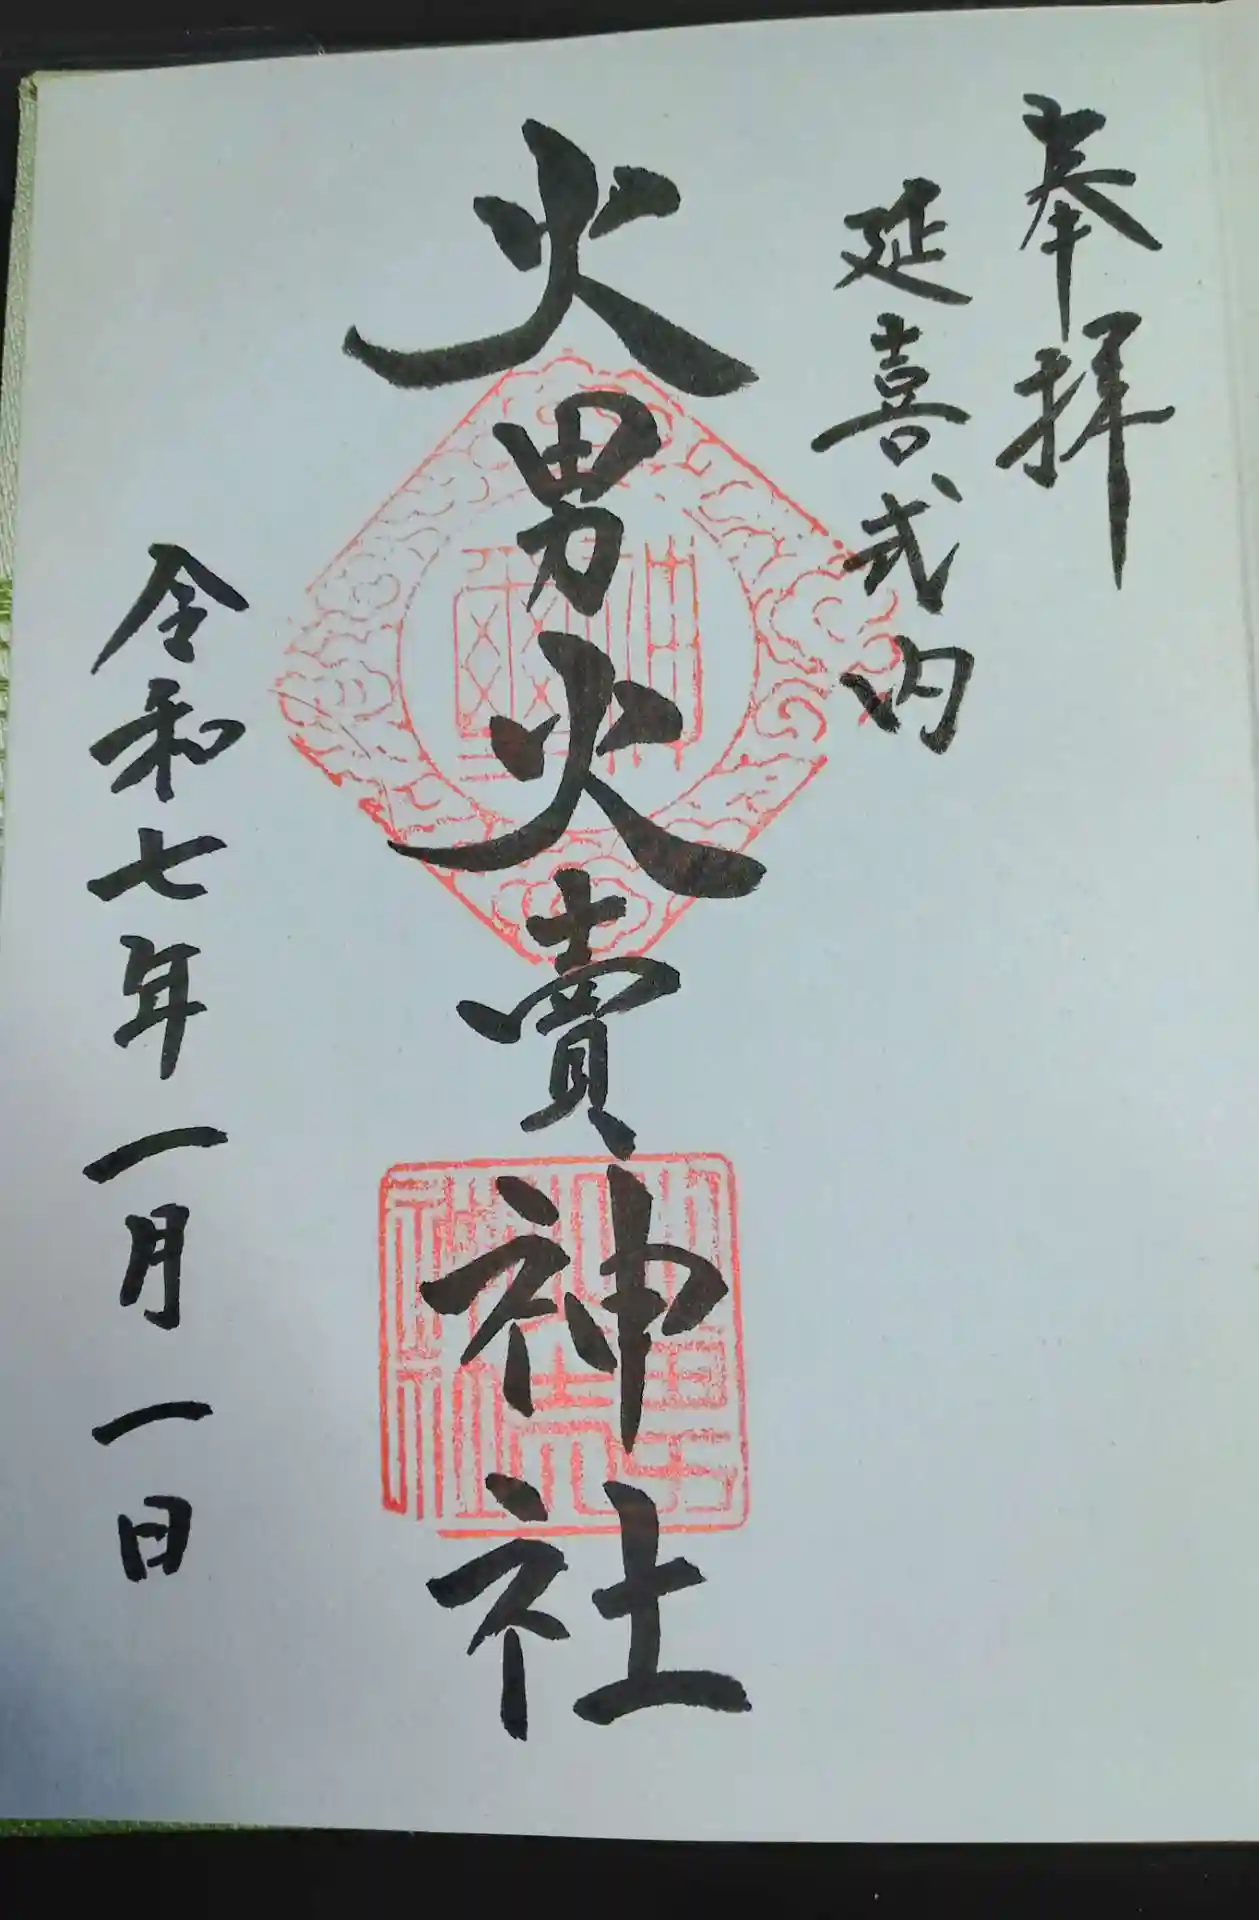 奉拝
延喜式内
火男火賣神社
令和七年一月一日